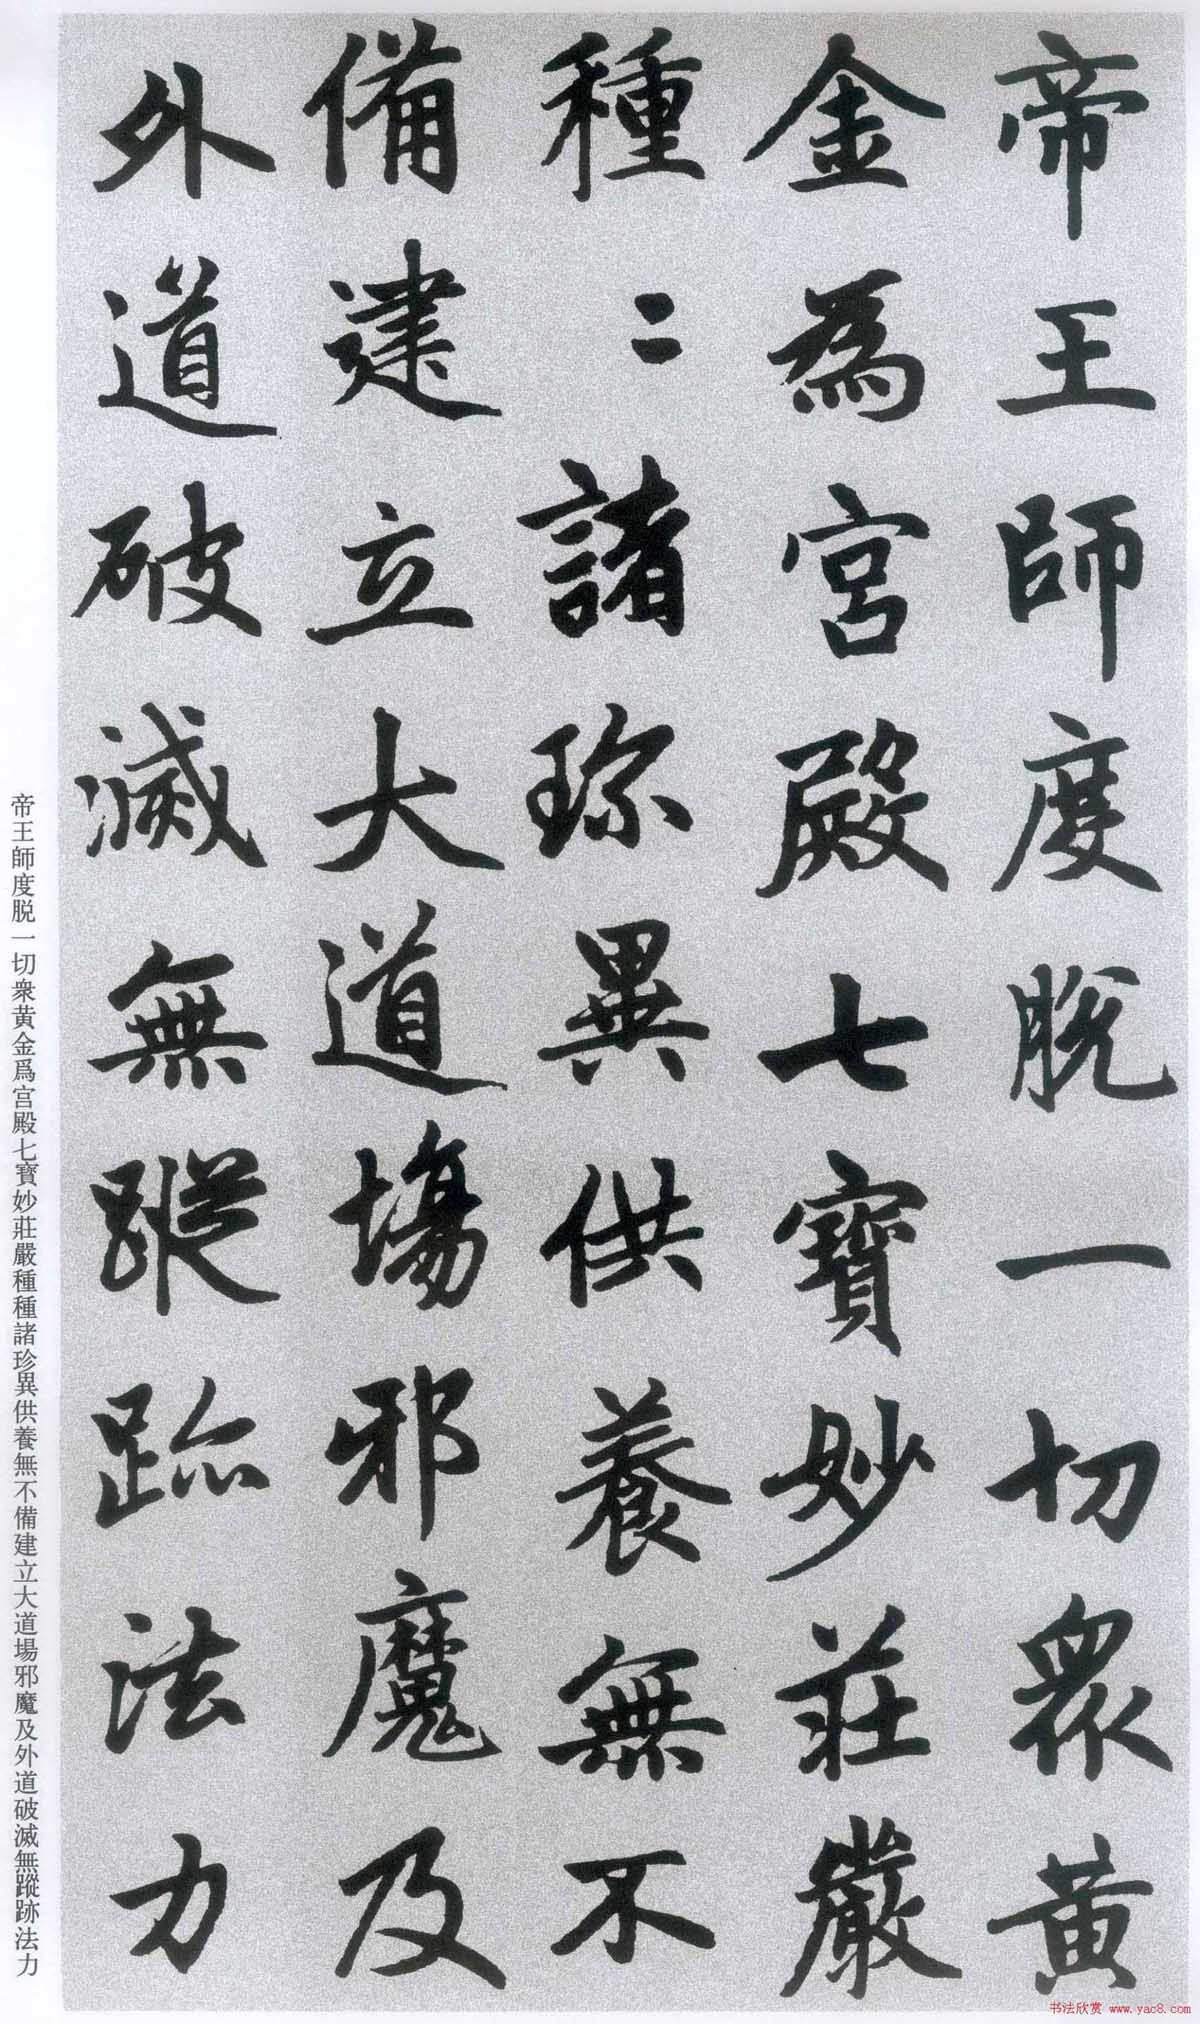 帝王師度脫一切衆黃
金為宮殿七寶妙莊嚴
種〻諸珎異供養無不
備建立大道場邪魔及
外道破滅無蹤跡法力
帝王師度脱一切衆黄金爲宫殿七寶妙莊嚴種種諸珍異供養無不備建立大道場邪魔及外道破滅無蹤跡法力
书法欣赏 www.yac8.com